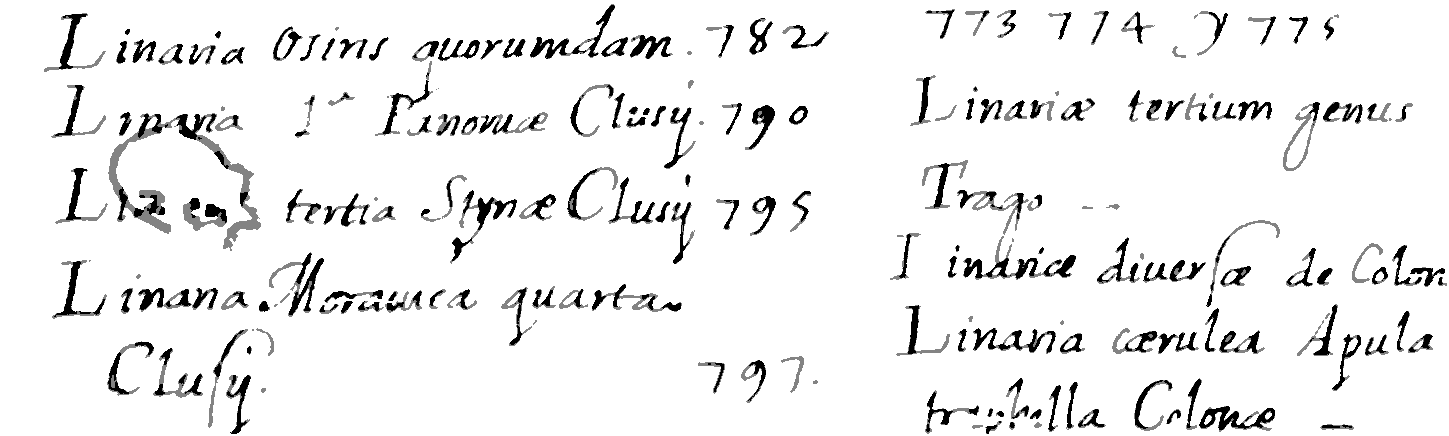 Linaria Osiris quorumdam. 782
Linaria 1ª Panoniæ Clusij. 790
tertia Styriæ Clusij 795
Linaria Morauica quarta
Clusij. 797.
773 774 y 775
Linariæ tertium genus
Trago --
Linariæ diuersæ de Colon
Linaria cærulea Apula
Colonæ -